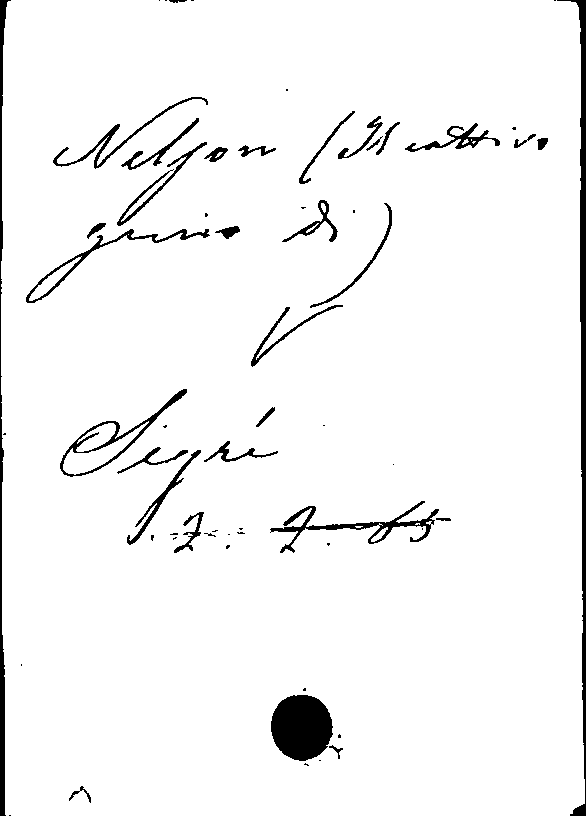 Nelson (Il cattivo
genio di)
V
Segré
J. Z. Z. 65